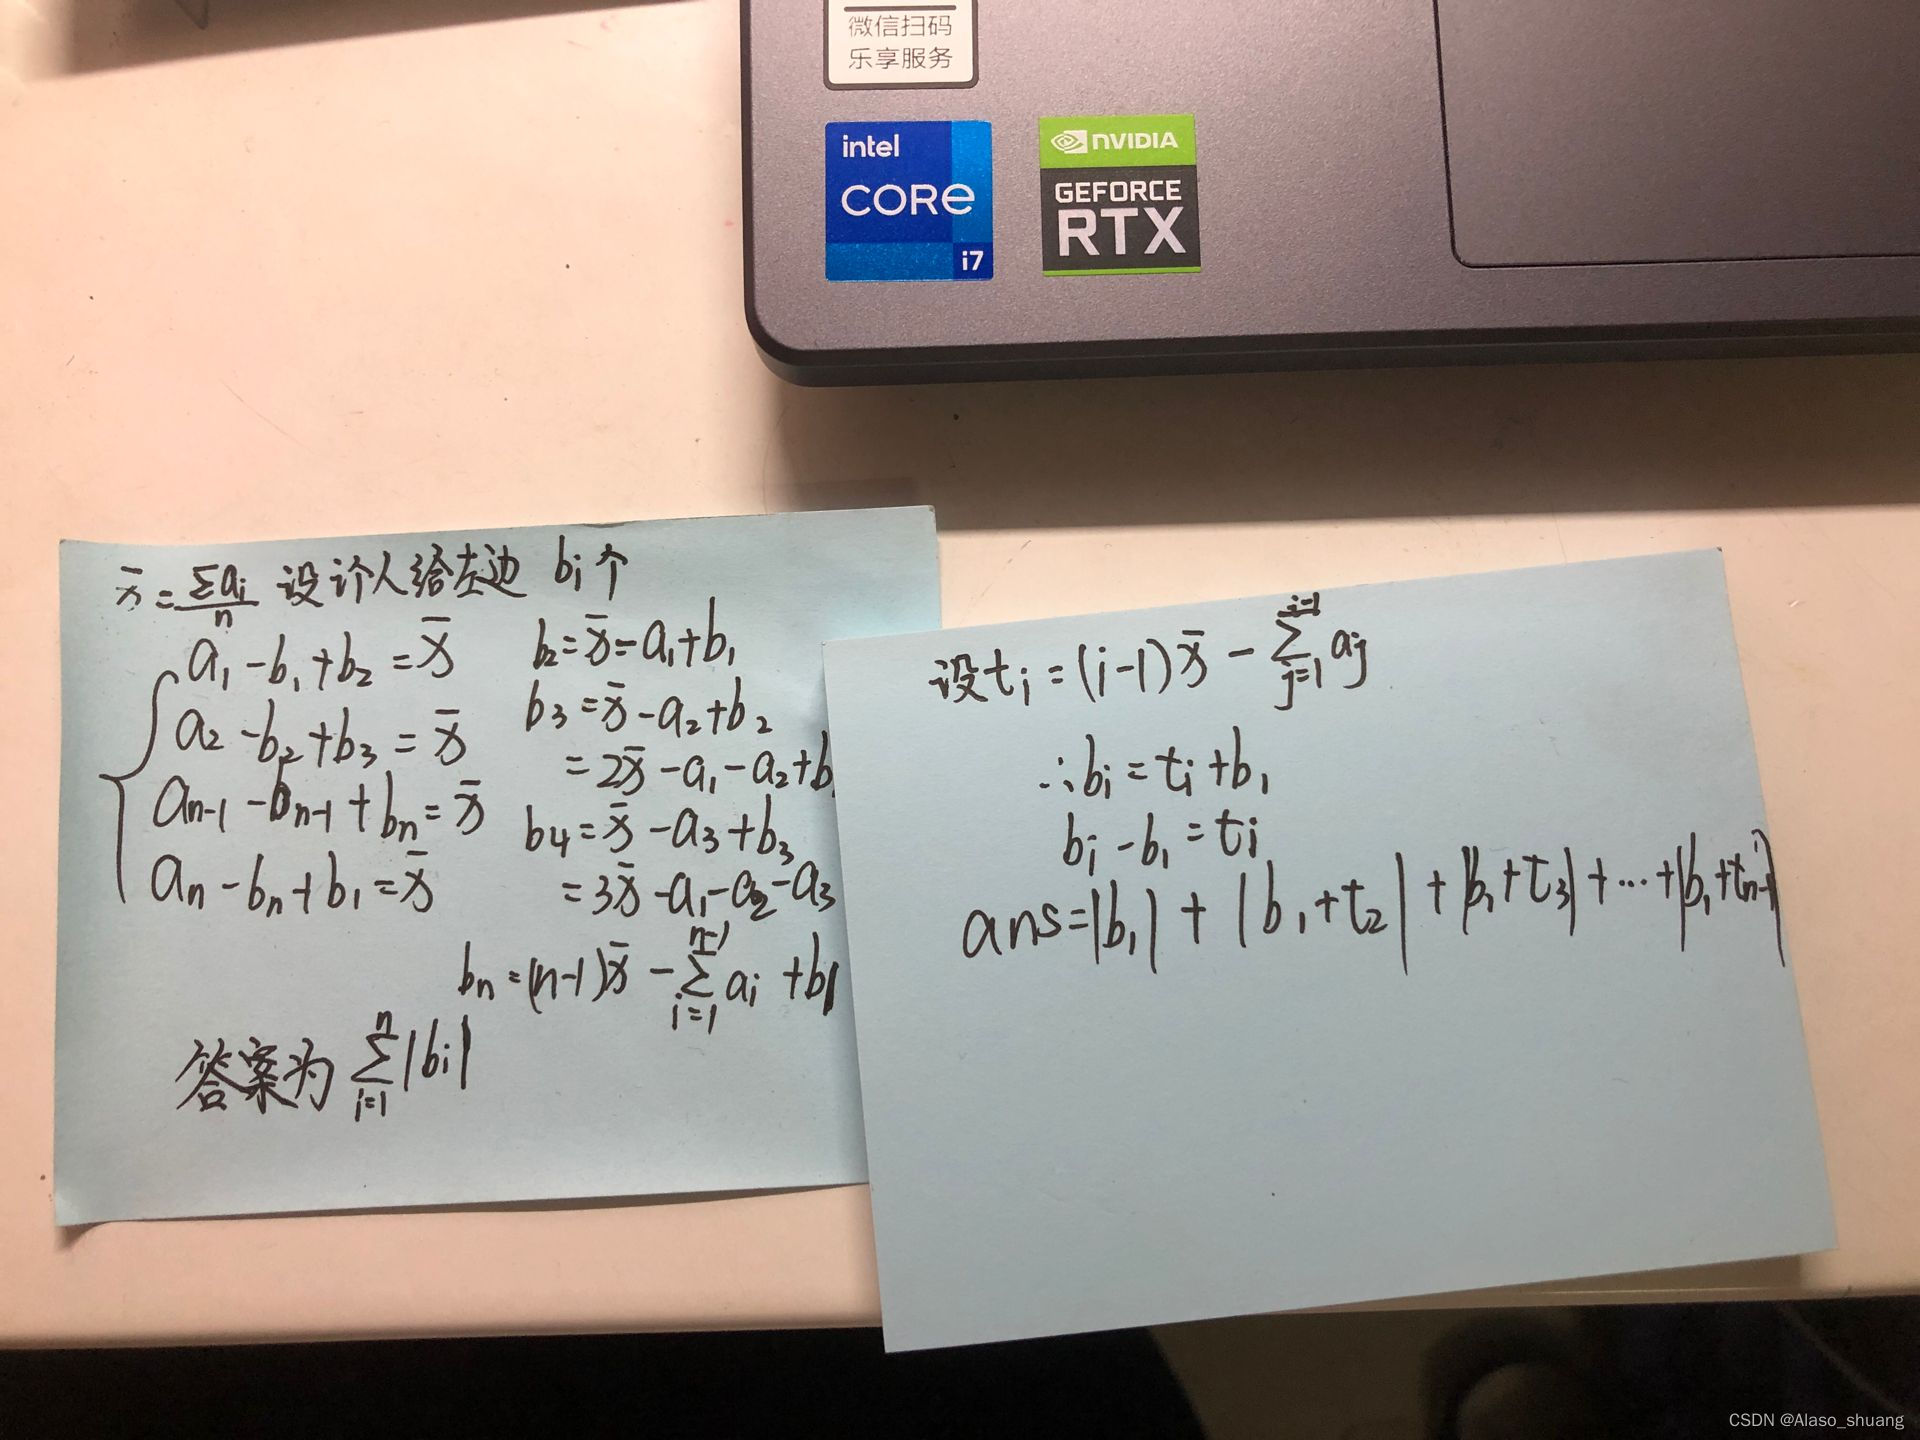 微信扫码
乐享服务
intel
CORe
i7
NVIDIA
GEFORCE
RTX
x̄ = Σai/n 设i个人给左边 bi个
a₁ - b₁ + b₂ = x̄
a₂ - b₂ + b₃ = x̄
aₙ₋₁ - bₙ₋₁ + bₙ = x̄
aₙ - bₙ + b₁ = x̄
b₂ = x̄ - a₁ + b₁
b₃ = x̄ - a₂ + b₂
= 2x̄ - a₁ - a₂ + b
b₄ = x̄ - a₃ + b₃
= 3x̄ - a₁ - a₂ - a₃
bₙ = (n-1)x̄ - Σ_{i=1}^{n-1} ai + b₁
答案为 Σ_{i=1}^{n} |bi|
设ti = (i-1)x̄ - Σ_{j=1}^{i-1} aj
∴bi = ti + b₁
bi - b₁ = ti
ans = |b₁| + |b₁+t₂| + |b₁+t₃| + ... + |b₁+tₙ₋₁|
CSDN @Alaso_shuang